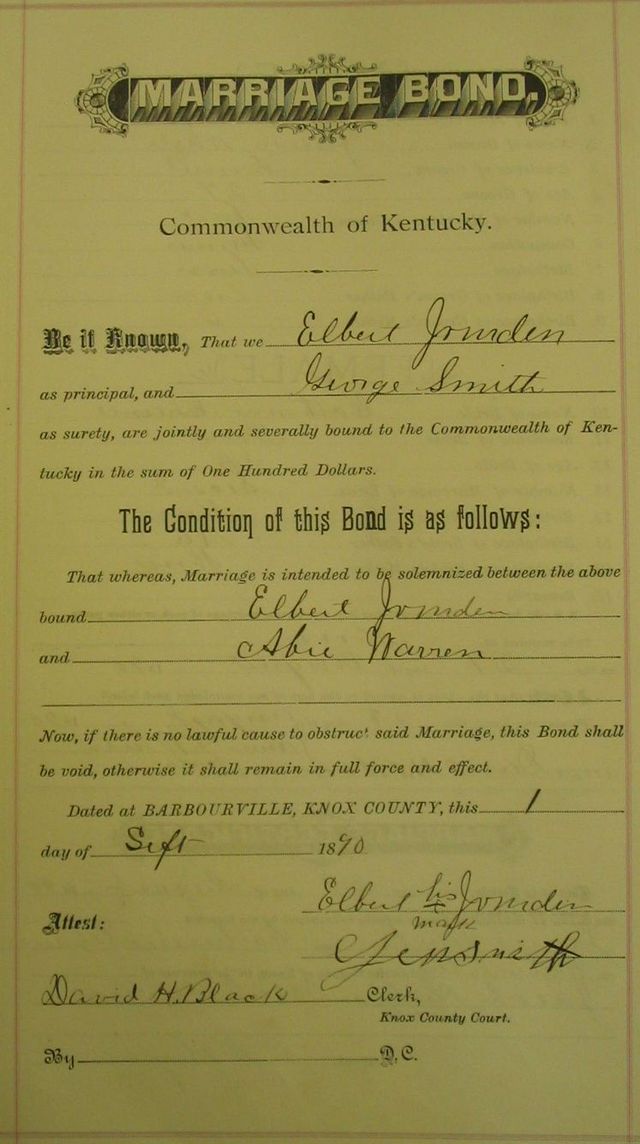 MARRIAGE BOND.
Commonwealth of Kentucky.
Be it Known, That we Elbert Jomden
as principal, and George Smith
as surety, are jointly and severally bound to the Commonwealth of Ken-
tucky in the sum of One Hundred Dollars.
The Condition of this Bond is as follows:
That whereas, Marriage is intended to be solemnized between the above
bound Elbert Jomden
and Abie Warren
Now, if there is no lawful cause to obstruct said Marriage, this Bond shall
be void, otherwise it shall remain in full force and effect.
Dated at BARBOURVILLE, KNOX COUNTY, this 1
day of Sept 1890
Elbert his x mark Jomden
Attest:
Geo Smith
David H. Black Clerk,
Knox County Court.
By D.C.